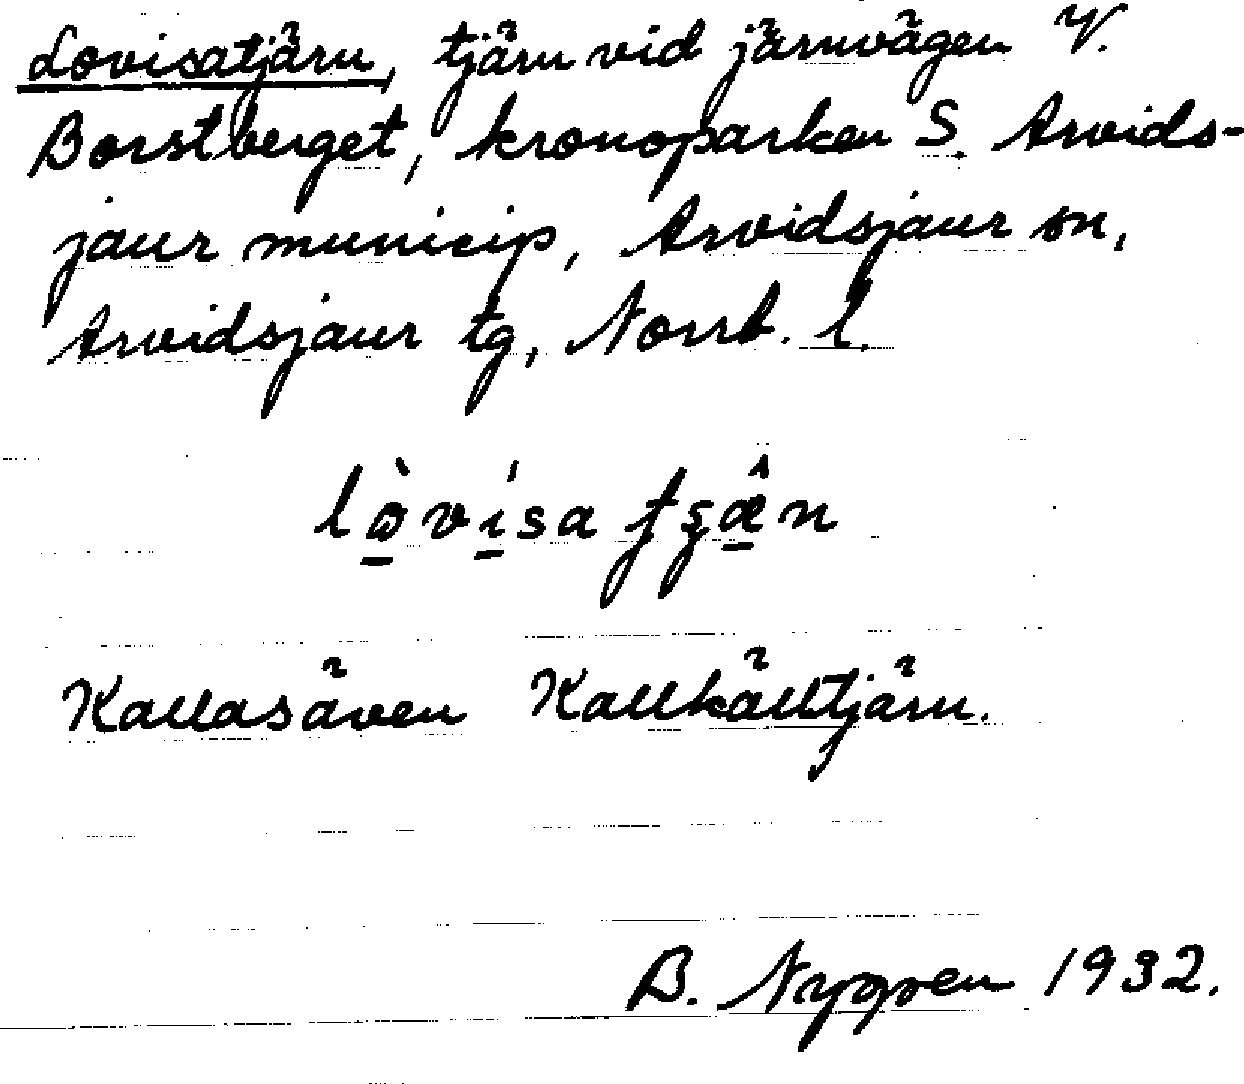 Lovisatjärn, tjärn vid järnvägen V.
Borstberget, kronoparken S. Arvids-
jaur municip, Arvidsjaur sn,
Arvidsjaur tg, Norrb. l.
Kallas även Kallkälltjärn.
B. Nygren 1932.